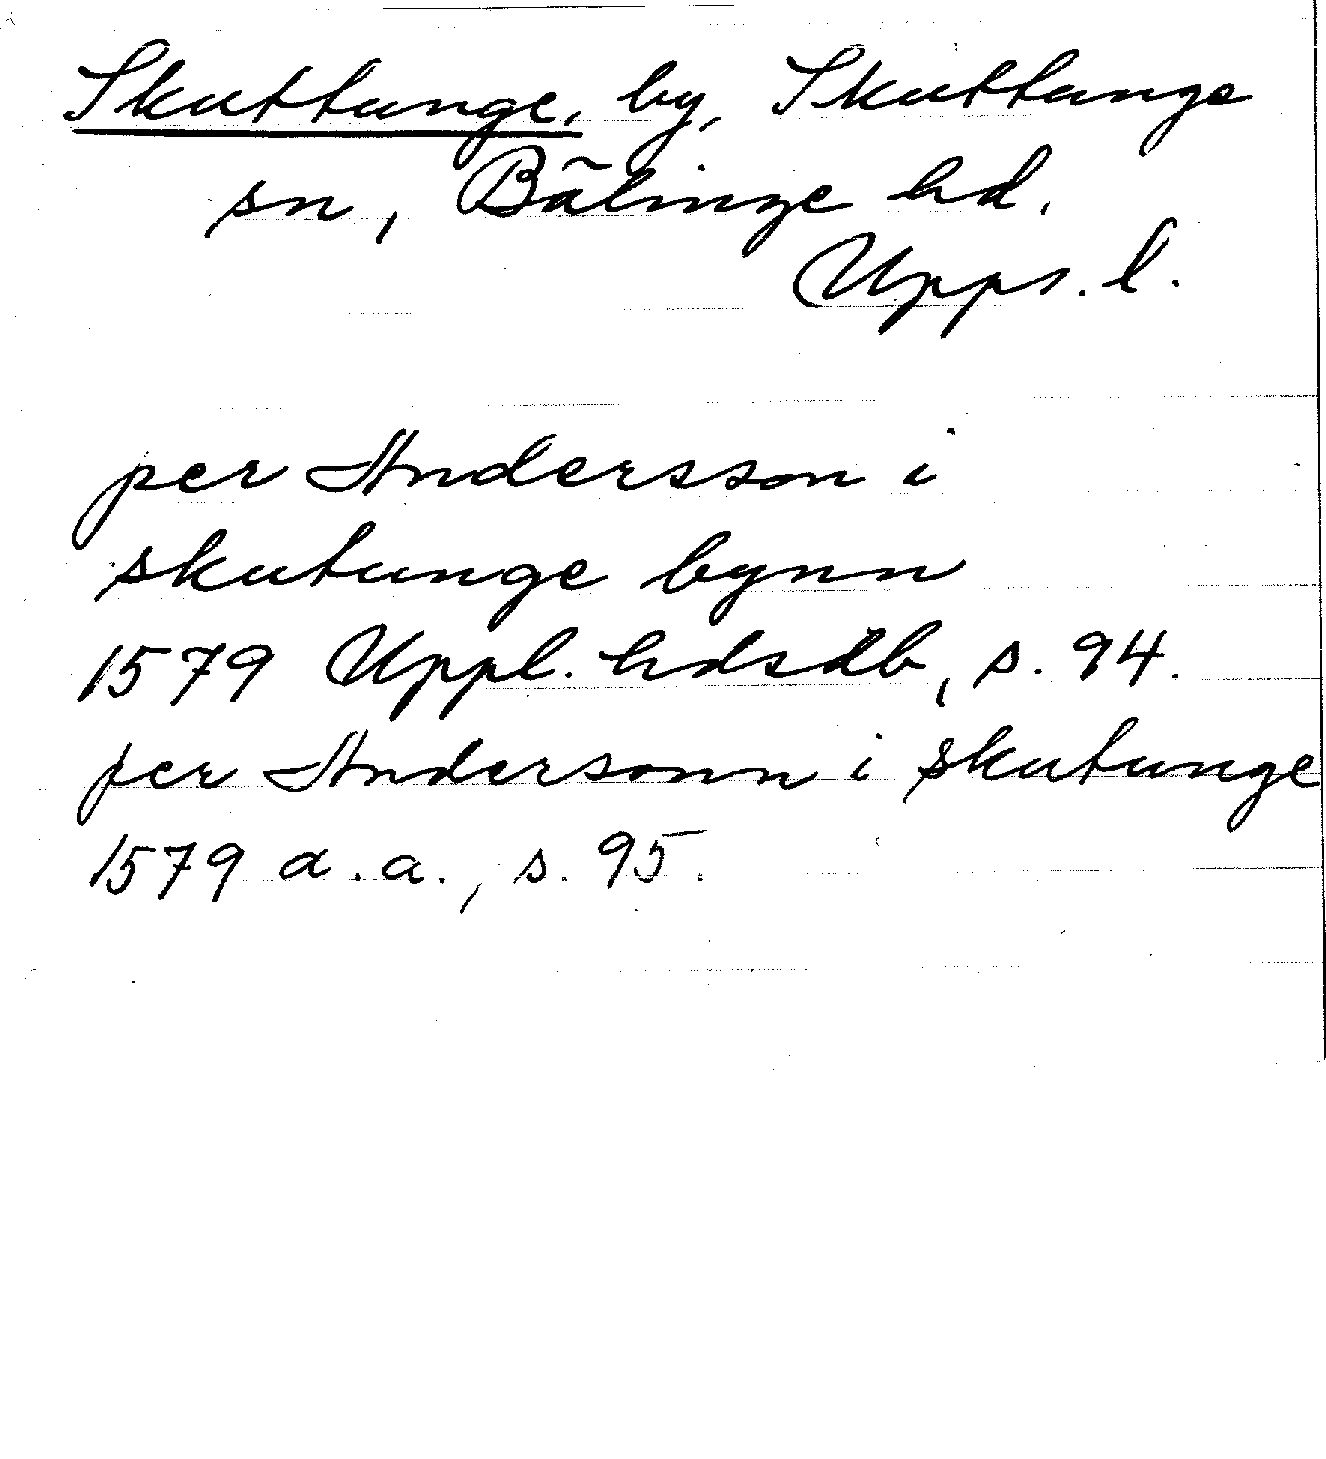 Skuttunge, by, Skuttunge
sn, Bälinge hd,
Upps. l.
per Andersson i
skutunge bynn
1579 Uppl. hdsdb, s. 94.
per Andersonn i skutunge
1579 a.a., s. 95.